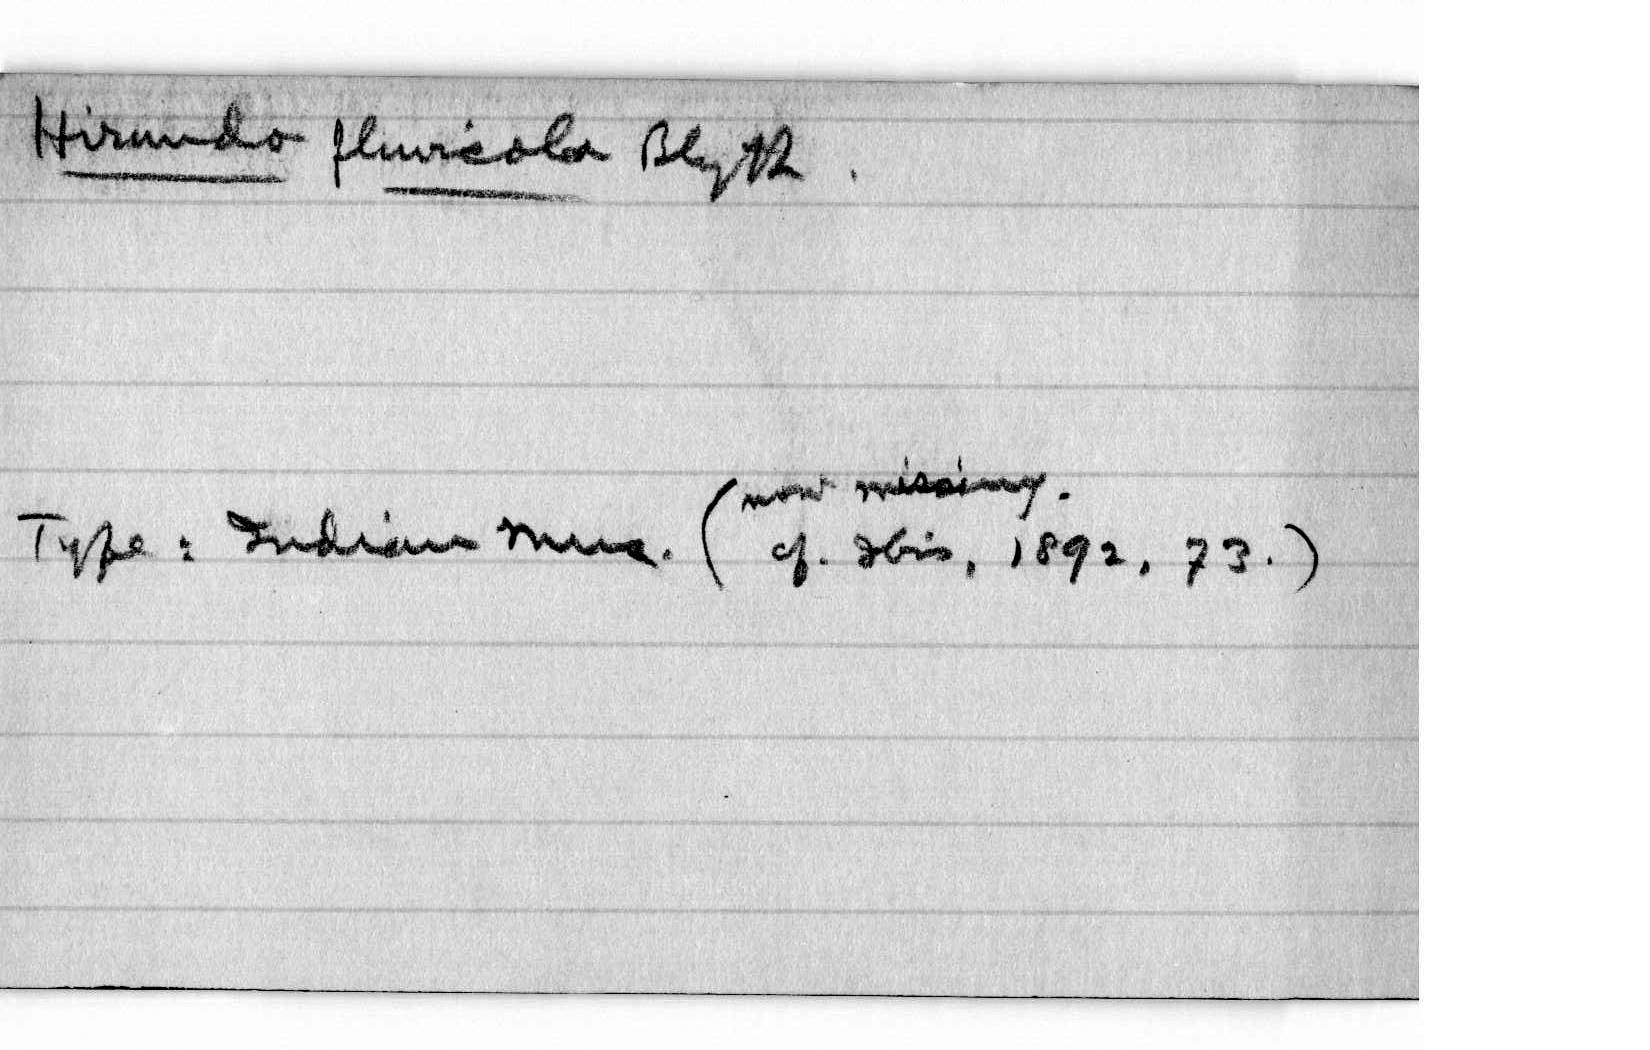 Hirundo fluvicola Blyth.
Type: Indian Mus. (now missing.
cf. Ibis, 1892, 73.)